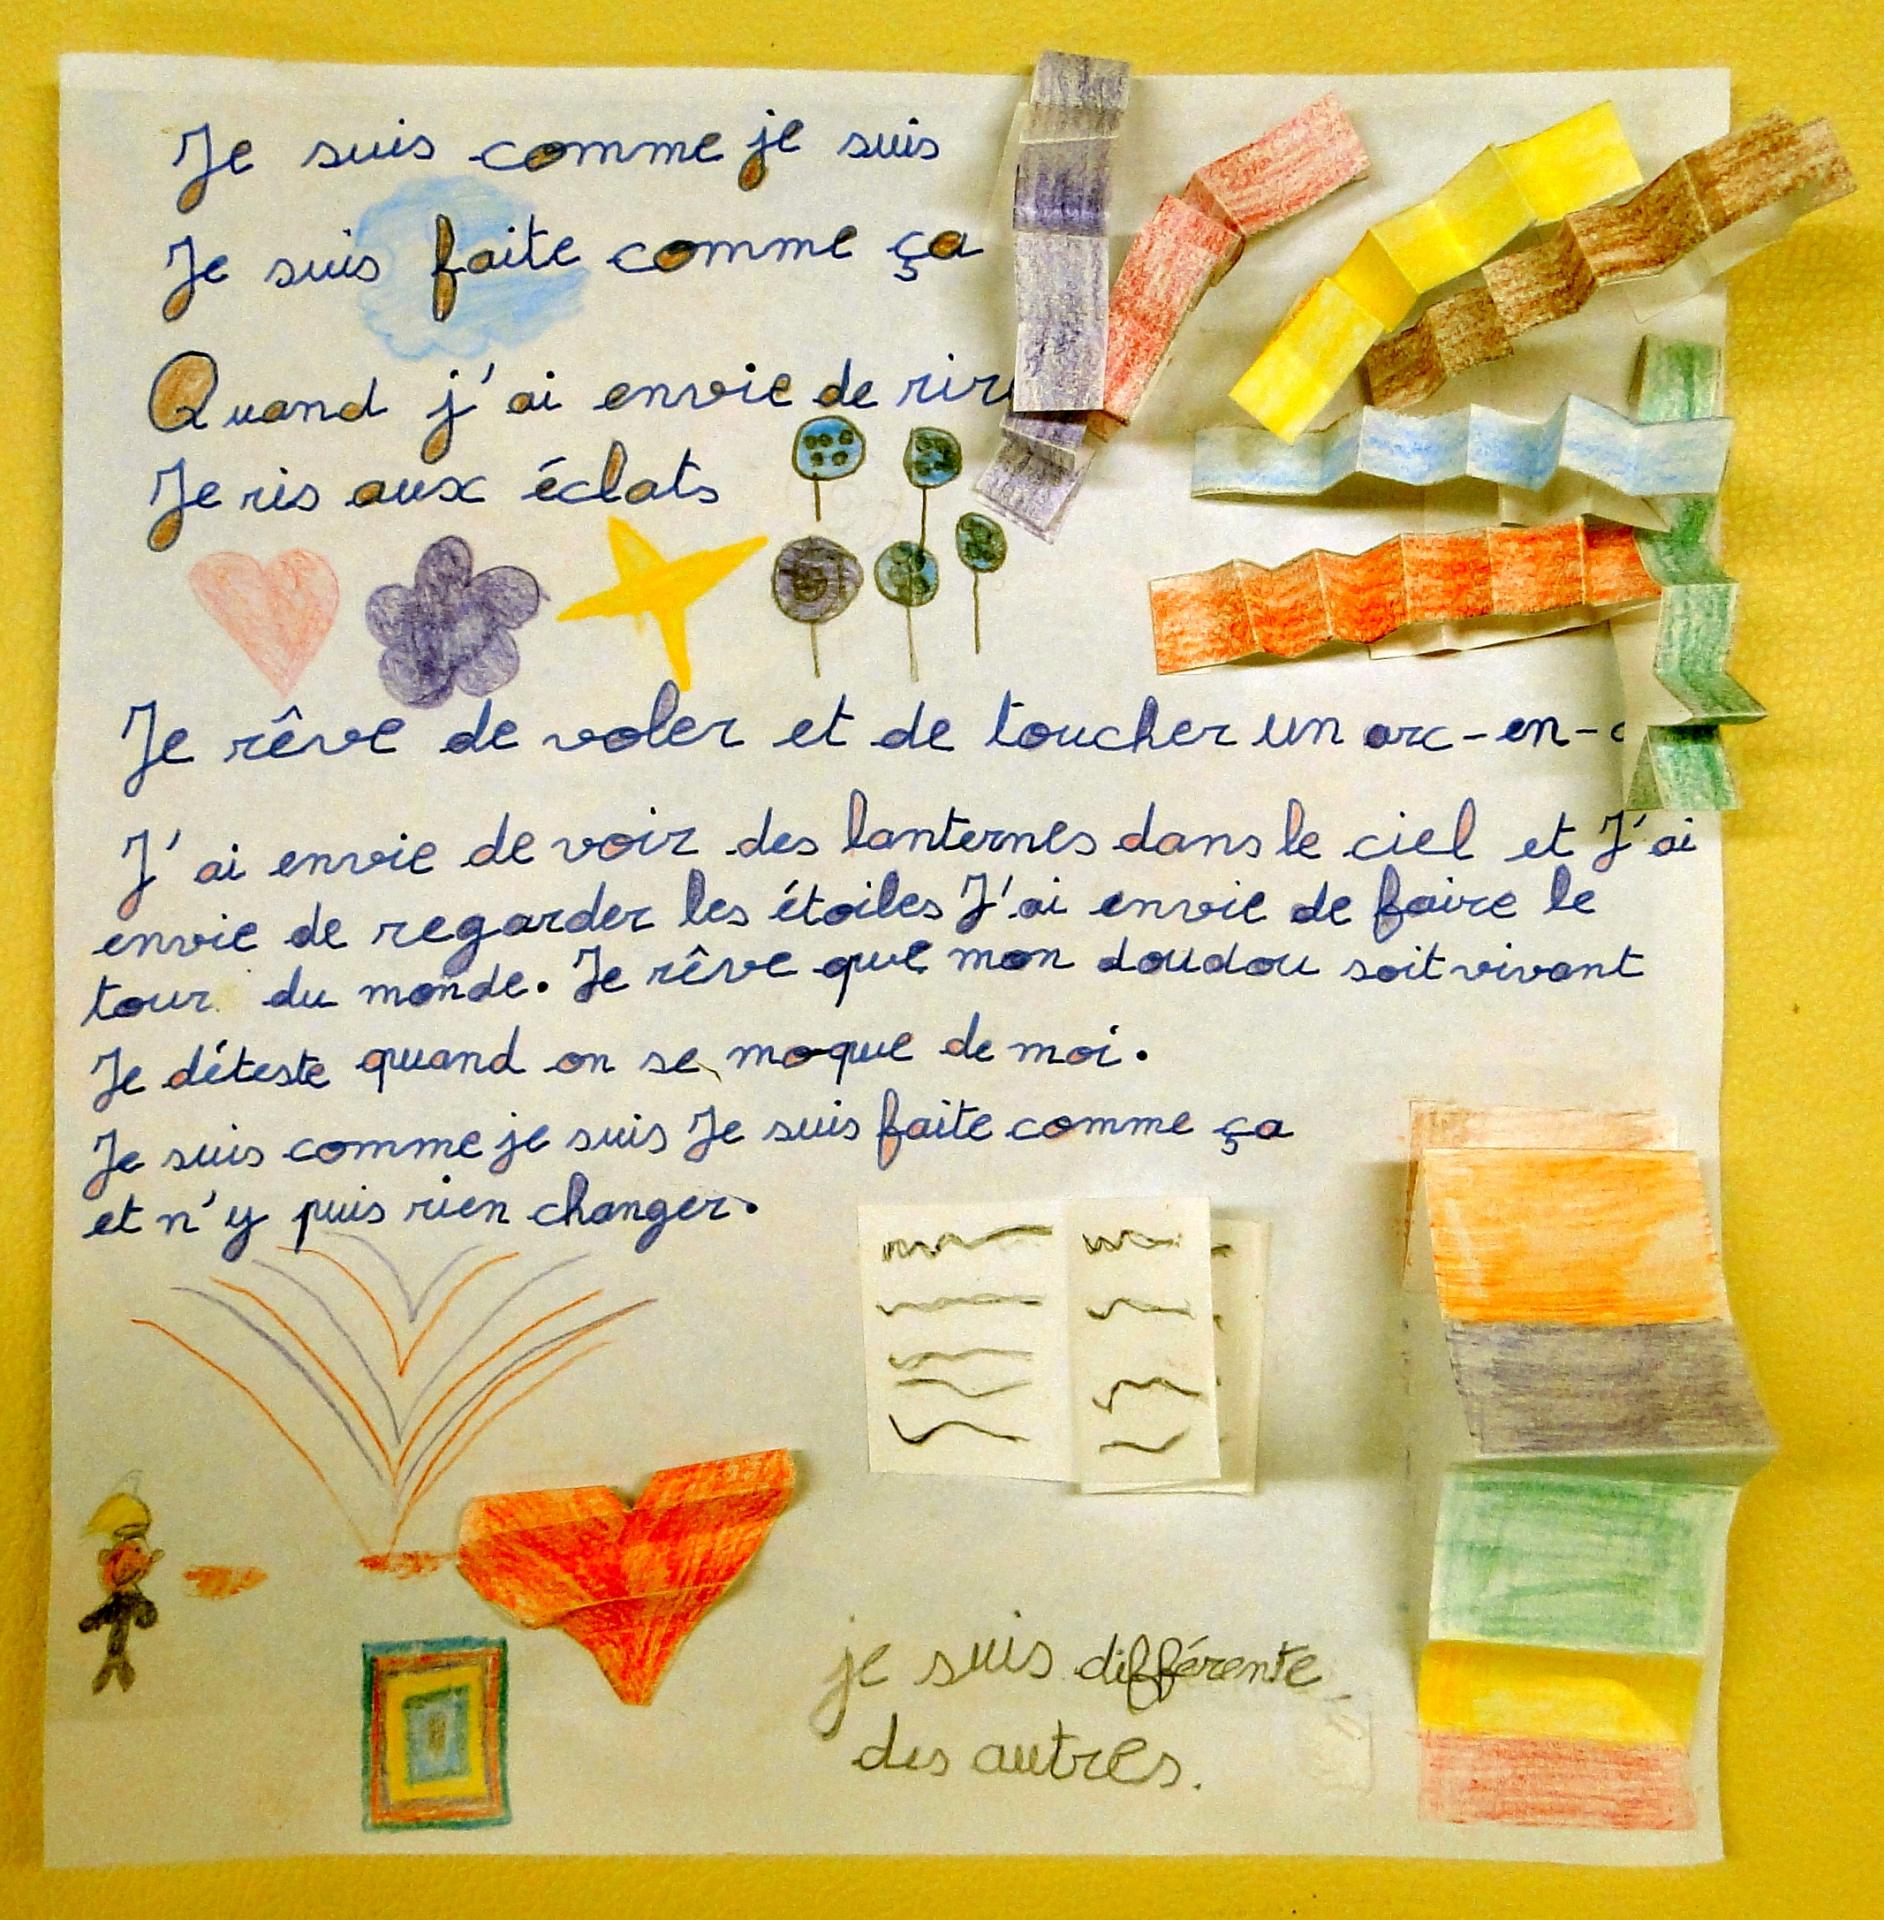 Je suis comme je suis
Je suis faite comme ça
Quand j'ai envie de rire
Je ris aux éclats
Je rêve de voler et de toucher un arc-en-c
J'ai envie de voir des lanternes dans le ciel et J'ai
envie de regarder les étoiles J'ai envie de faire le
tour du monde. Je rêve que mon doudou soit vivant
Je déteste quand on se moque de moi.
Je suis comme je suis Je suis faite comme ça
et n'y puis rien changer.
je suis différente
des autres.